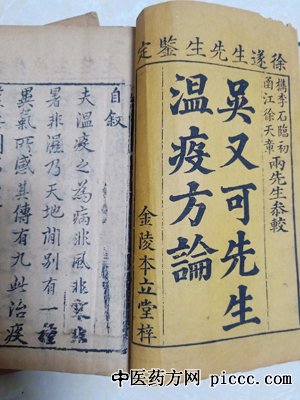 徐遂生先生鑒定
檇李石臨初
函江徐天章
兩先生恭較
吳又可先生
溫疫方論
金陵本立堂梓
自叙
夫溫疫之為病非風非寒非
暑非濕乃天地間別有一種
異氣所感其傳有九此治疫
中医药方网 piccc.com